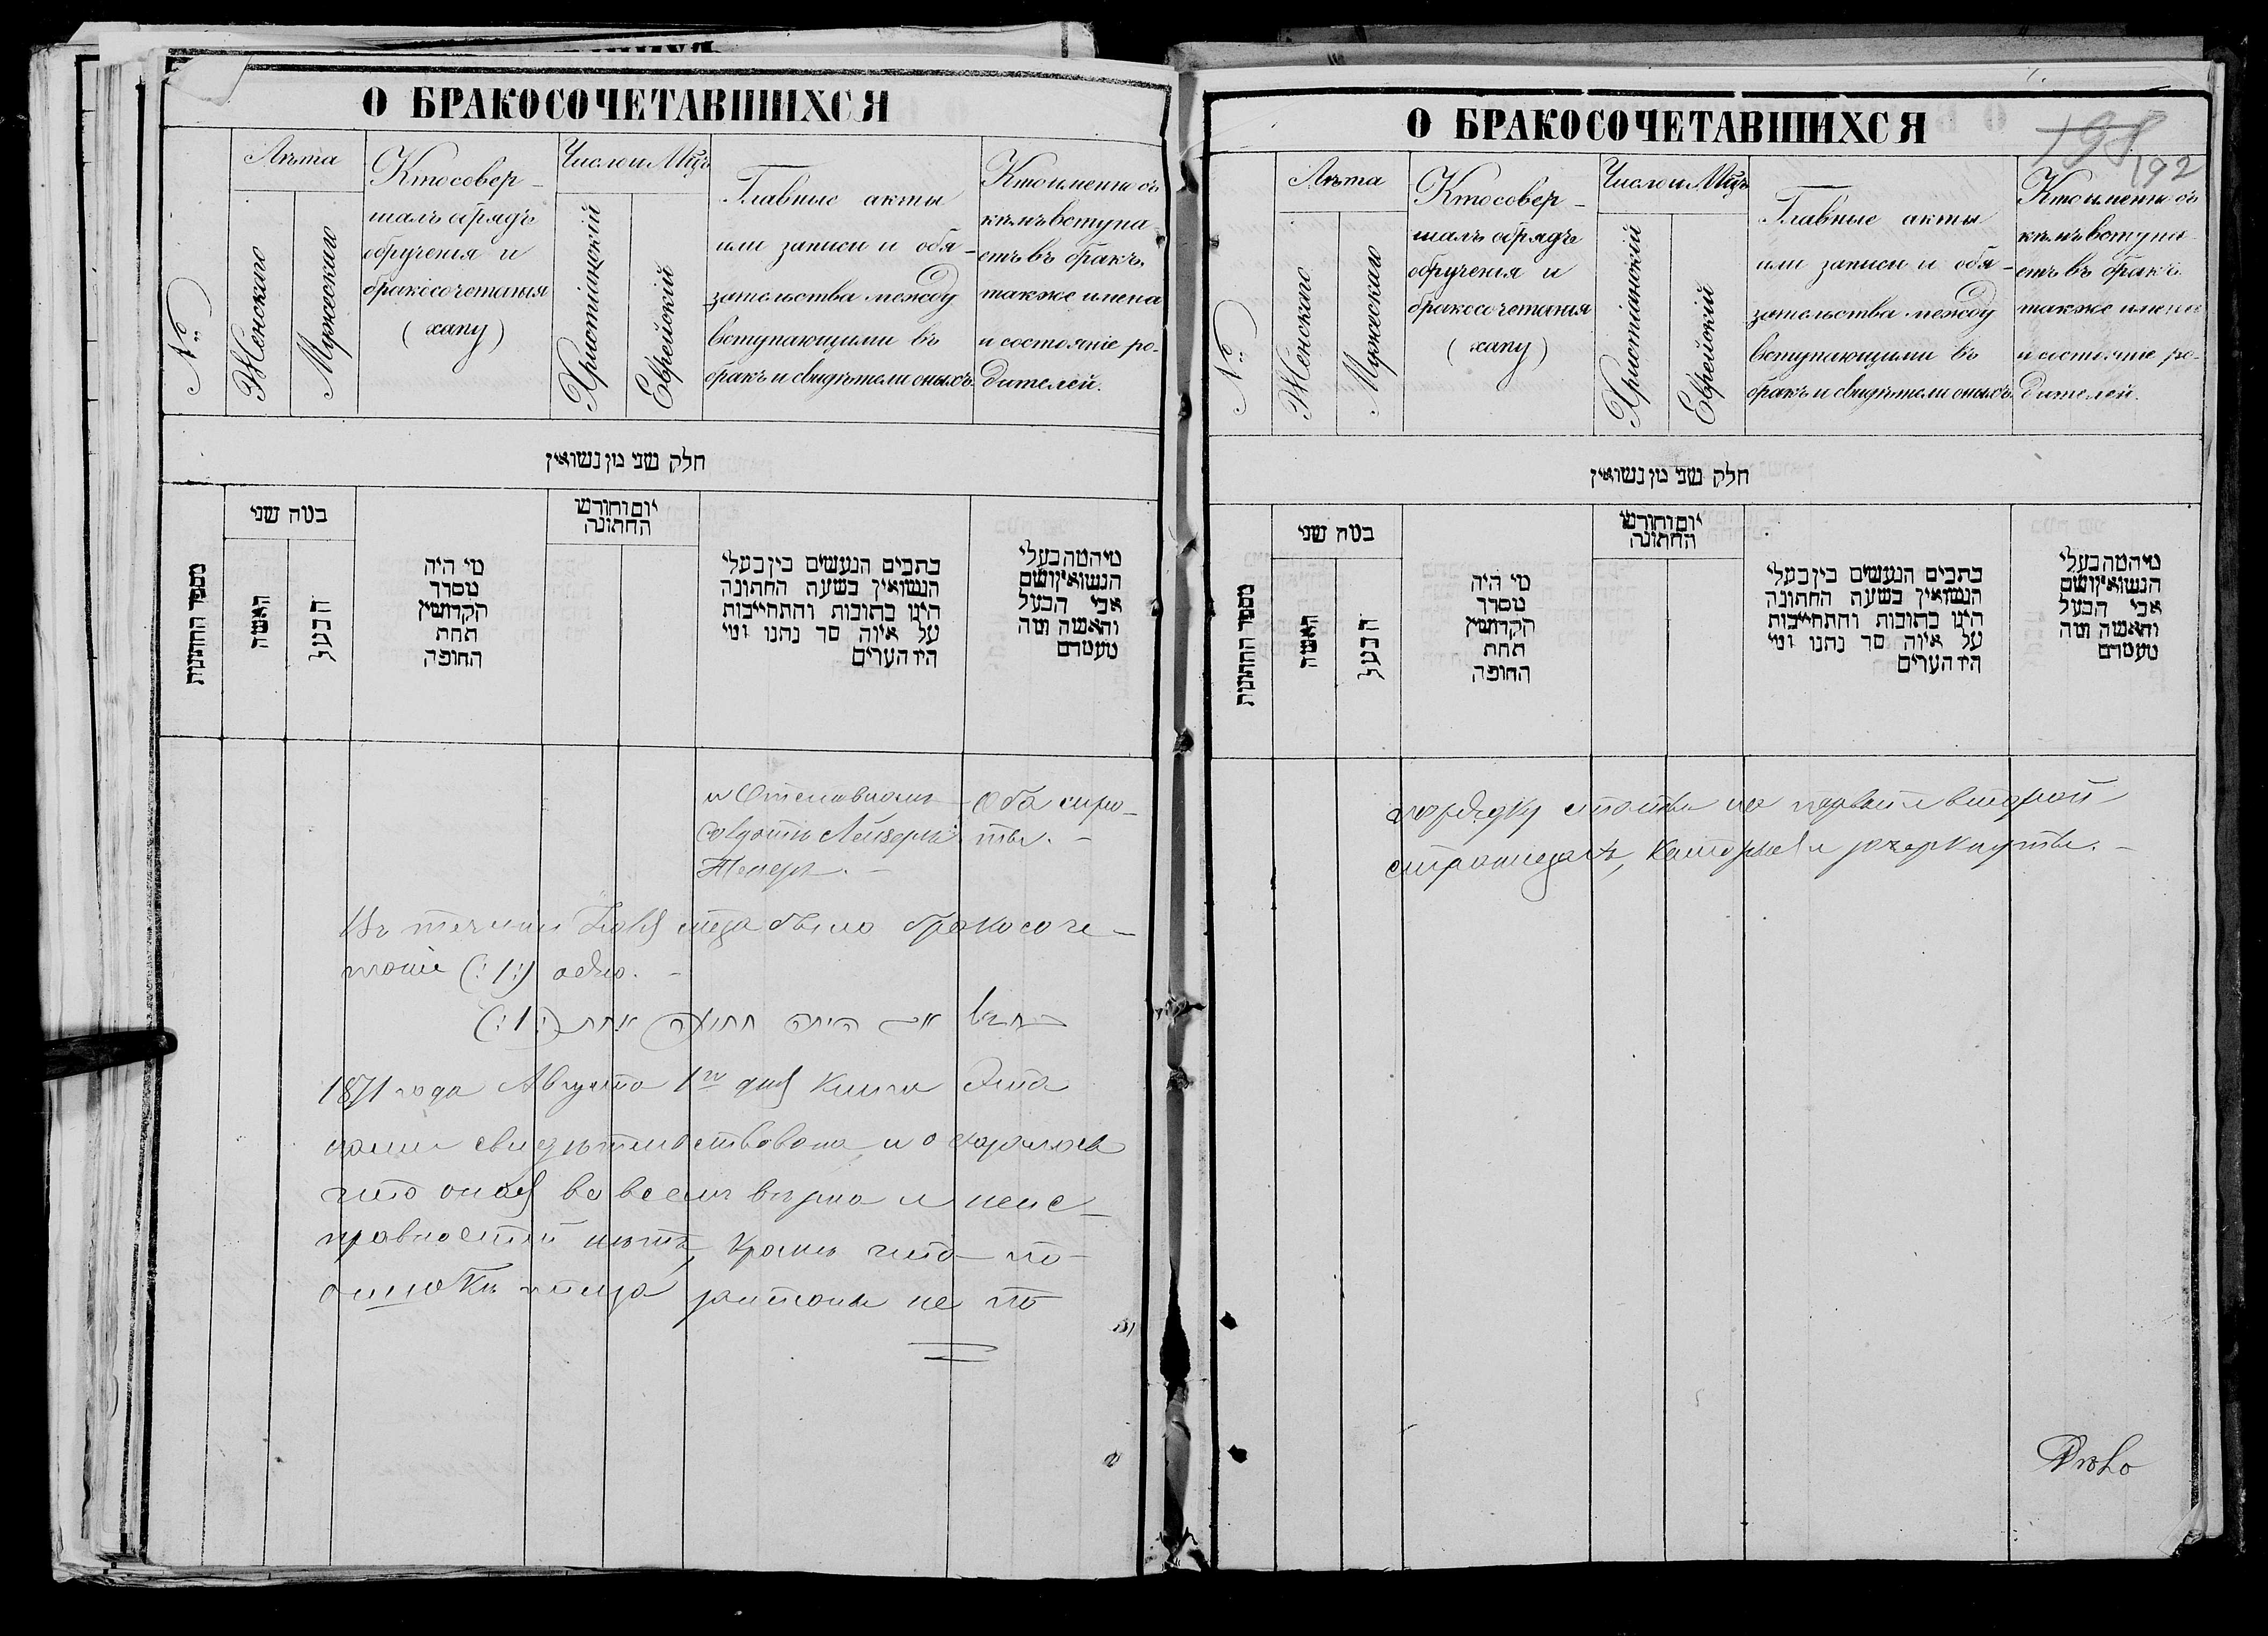 О БРАКОСОЧЕТАВШИХСЯ
№
Лѣта
Женскаго
Мужескаго
Кто совер-
шалъ обрядъ
обрученія и
бракосочетанія
(хапу)
Число и Мцъ
Христіанскій
Еврейскій
Главные акты
или записи и обя-
зательства между
вступающими въ
бракъ и свидѣтели оныхъ.
Кто именно съ
кѣмъ вступа-
етъ въ бракъ.
также имена
и состояніе ро-
дителей.
חלק שני מן נשואין
מספר החתונות
כמה שני
האשה
הבעל
מי היה
מסדר
הקדושין
תחת
החופה
יום וחודש
החתונה
כתבים הנעשים בין בעלי
הנשואין בשעת החתונה
היינו כתובות והתחייבות
על איזה סך נתנו ומי
היו העדים
מי המה בעלי
הנשואין ושם
אבי הבעל
והאשה ומה
מעמדם
Оба сиро-
ты. -
Въ теченіи Іюля м-ца было бракосоче-
таніе (:1:) одно. -
היתה חתונה אחת (:1:)
1871 года Августа 1го дня книга эта
нами свидѣтельствована и оказалось
что оная во всемъ вѣрна и неис-
правностей нѣтъ, кромѣ что по
ошибкѣ писца не по
О БРАКОСОЧЕТАВШИХСЯ
192
№
Лѣта
Женскаго
Мужескаго
Кто совер-
шалъ обрядъ
обрученія и
бракосочетанія
(хапу)
Число и Мцъ
Христіанскій
Еврейскій
Главные акты
или записи и обя-
зательства между
вступающими въ
бракъ и свидѣтели оныхъ.
Кто именно съ
кѣмъ вступа-
етъ въ бракъ.
также имена
и состояніе ро-
дителей.
חלק שני מן נשואין
מספר החתונות
כמה שני
האשה
הבעל
מי היה
מסדר
הקדושין
תחת
החופה
יום וחודש
החתונה
כתבים הנעשים בין בעלי
הנשואין בשעת החתונה
היינו כתובות והתחייבות
על איזה סך נתנו ומי
היו העדים
מי המה בעלי
הנשואין ושם
אבי הבעל
והאשה ומה
מעמדם
порядку статьи на первой и второй
страницахъ, которые и зачеркнуты. -